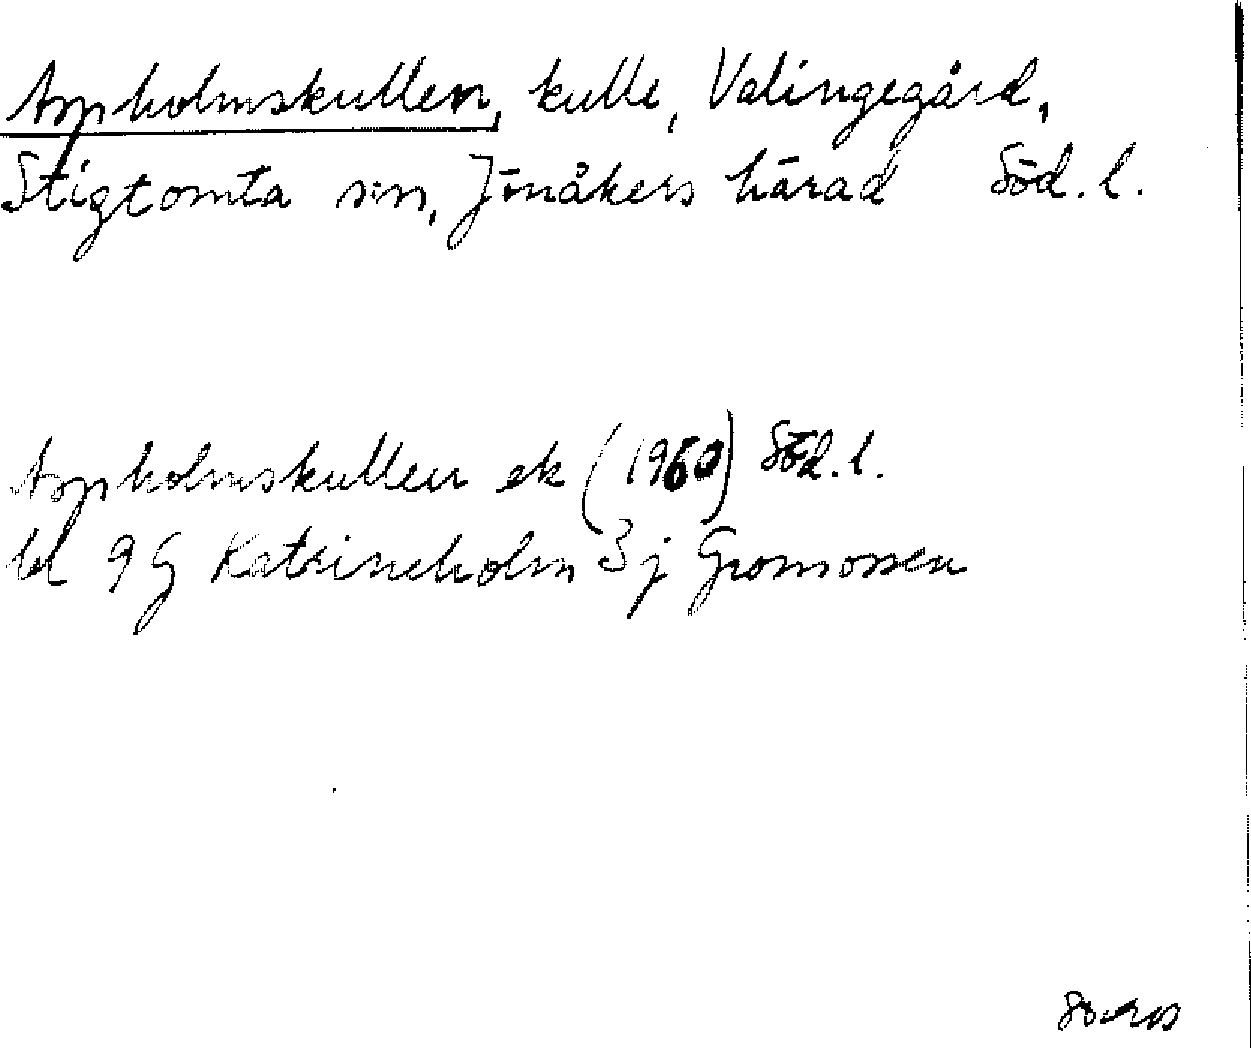 Aspholmskullen, kulle, Valingegård,
Stigtomta sn, Jönåkers härad Söd. l.
Aspholmskullen ek (1960) Söd. l.
bl 9 G Katrineholm 3 j Gromossen